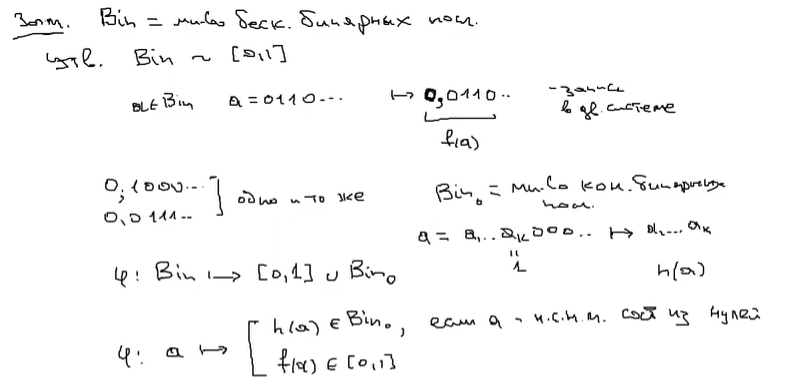 Зам. Bin = мн-во беск. бинарных посл.
Утв. Bin ~ [0,1]
a ∈ Bin a = 0110... ↦ 0,0110.. - запись в дв. системе
f(a)
0,1000...
0,0111..
] одно и то же
Bin₀ = мн-во кон. бинарных посл.
a = a₁..aₖ000.. ↦ a₁...aₖ
1
h(a)
φ: Bin ↦ [0,1] ∪ Bin₀
φ: a ↦ [ h(a) ∈ Bin₀, если a - н.с.н.м. сост из нулей
f(a) ∈ [0,1]